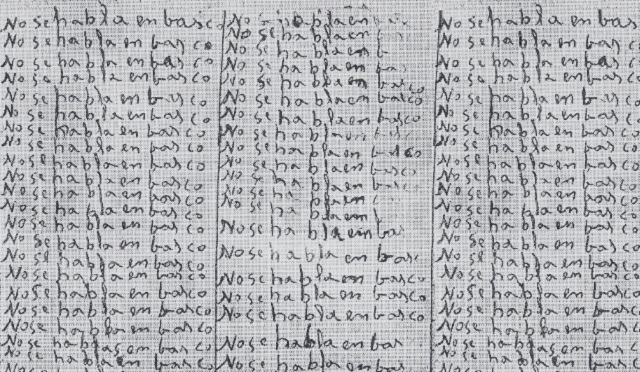 No se habla en basco
No se habla en basco
No se habla en basco
No se habla en basco
No se habla en basco
No se habla en basco
No se habla en basco
No se habla en basco
No se habla en basco
No se habla en basco
No se habla en basco
No se habla en basco
No se habla en basco
No se habla en basco
No se habla en basco
No se habla en basco
No se habla en basco
No se habla en basco
No se habla en basco
No se habla en basco
No se habla en basco
No habla en
No se habla en
No se habla en b
No se habla en bas
No se habla en basco
No se habla en basco
No se habla en basco
No se habla
No se habla en basco
No se habla en basco
No se habla en basco
No se ha bla en
bla em
No se habla en bas
No se habla en basc
No se habla en basco
No se habla en basco
No se habla en basco
No se habla en bas
No se habla en bas
No se habla en basco
No se habla en basco
No se habla en basco
No se habla en basco
No se habla en basco
No se habla en basco
No se habla en basco
No se habla en basco
No se habla en basco
No se habla en basco
No se habla en basco
No se habla en basco
No se habla en basco
No se habla en basco
No se habla en basco
No se habla en basco
No se habla en basco
No se habla en basco
No se habla en basco
No se habla en basco
No se habla en basco